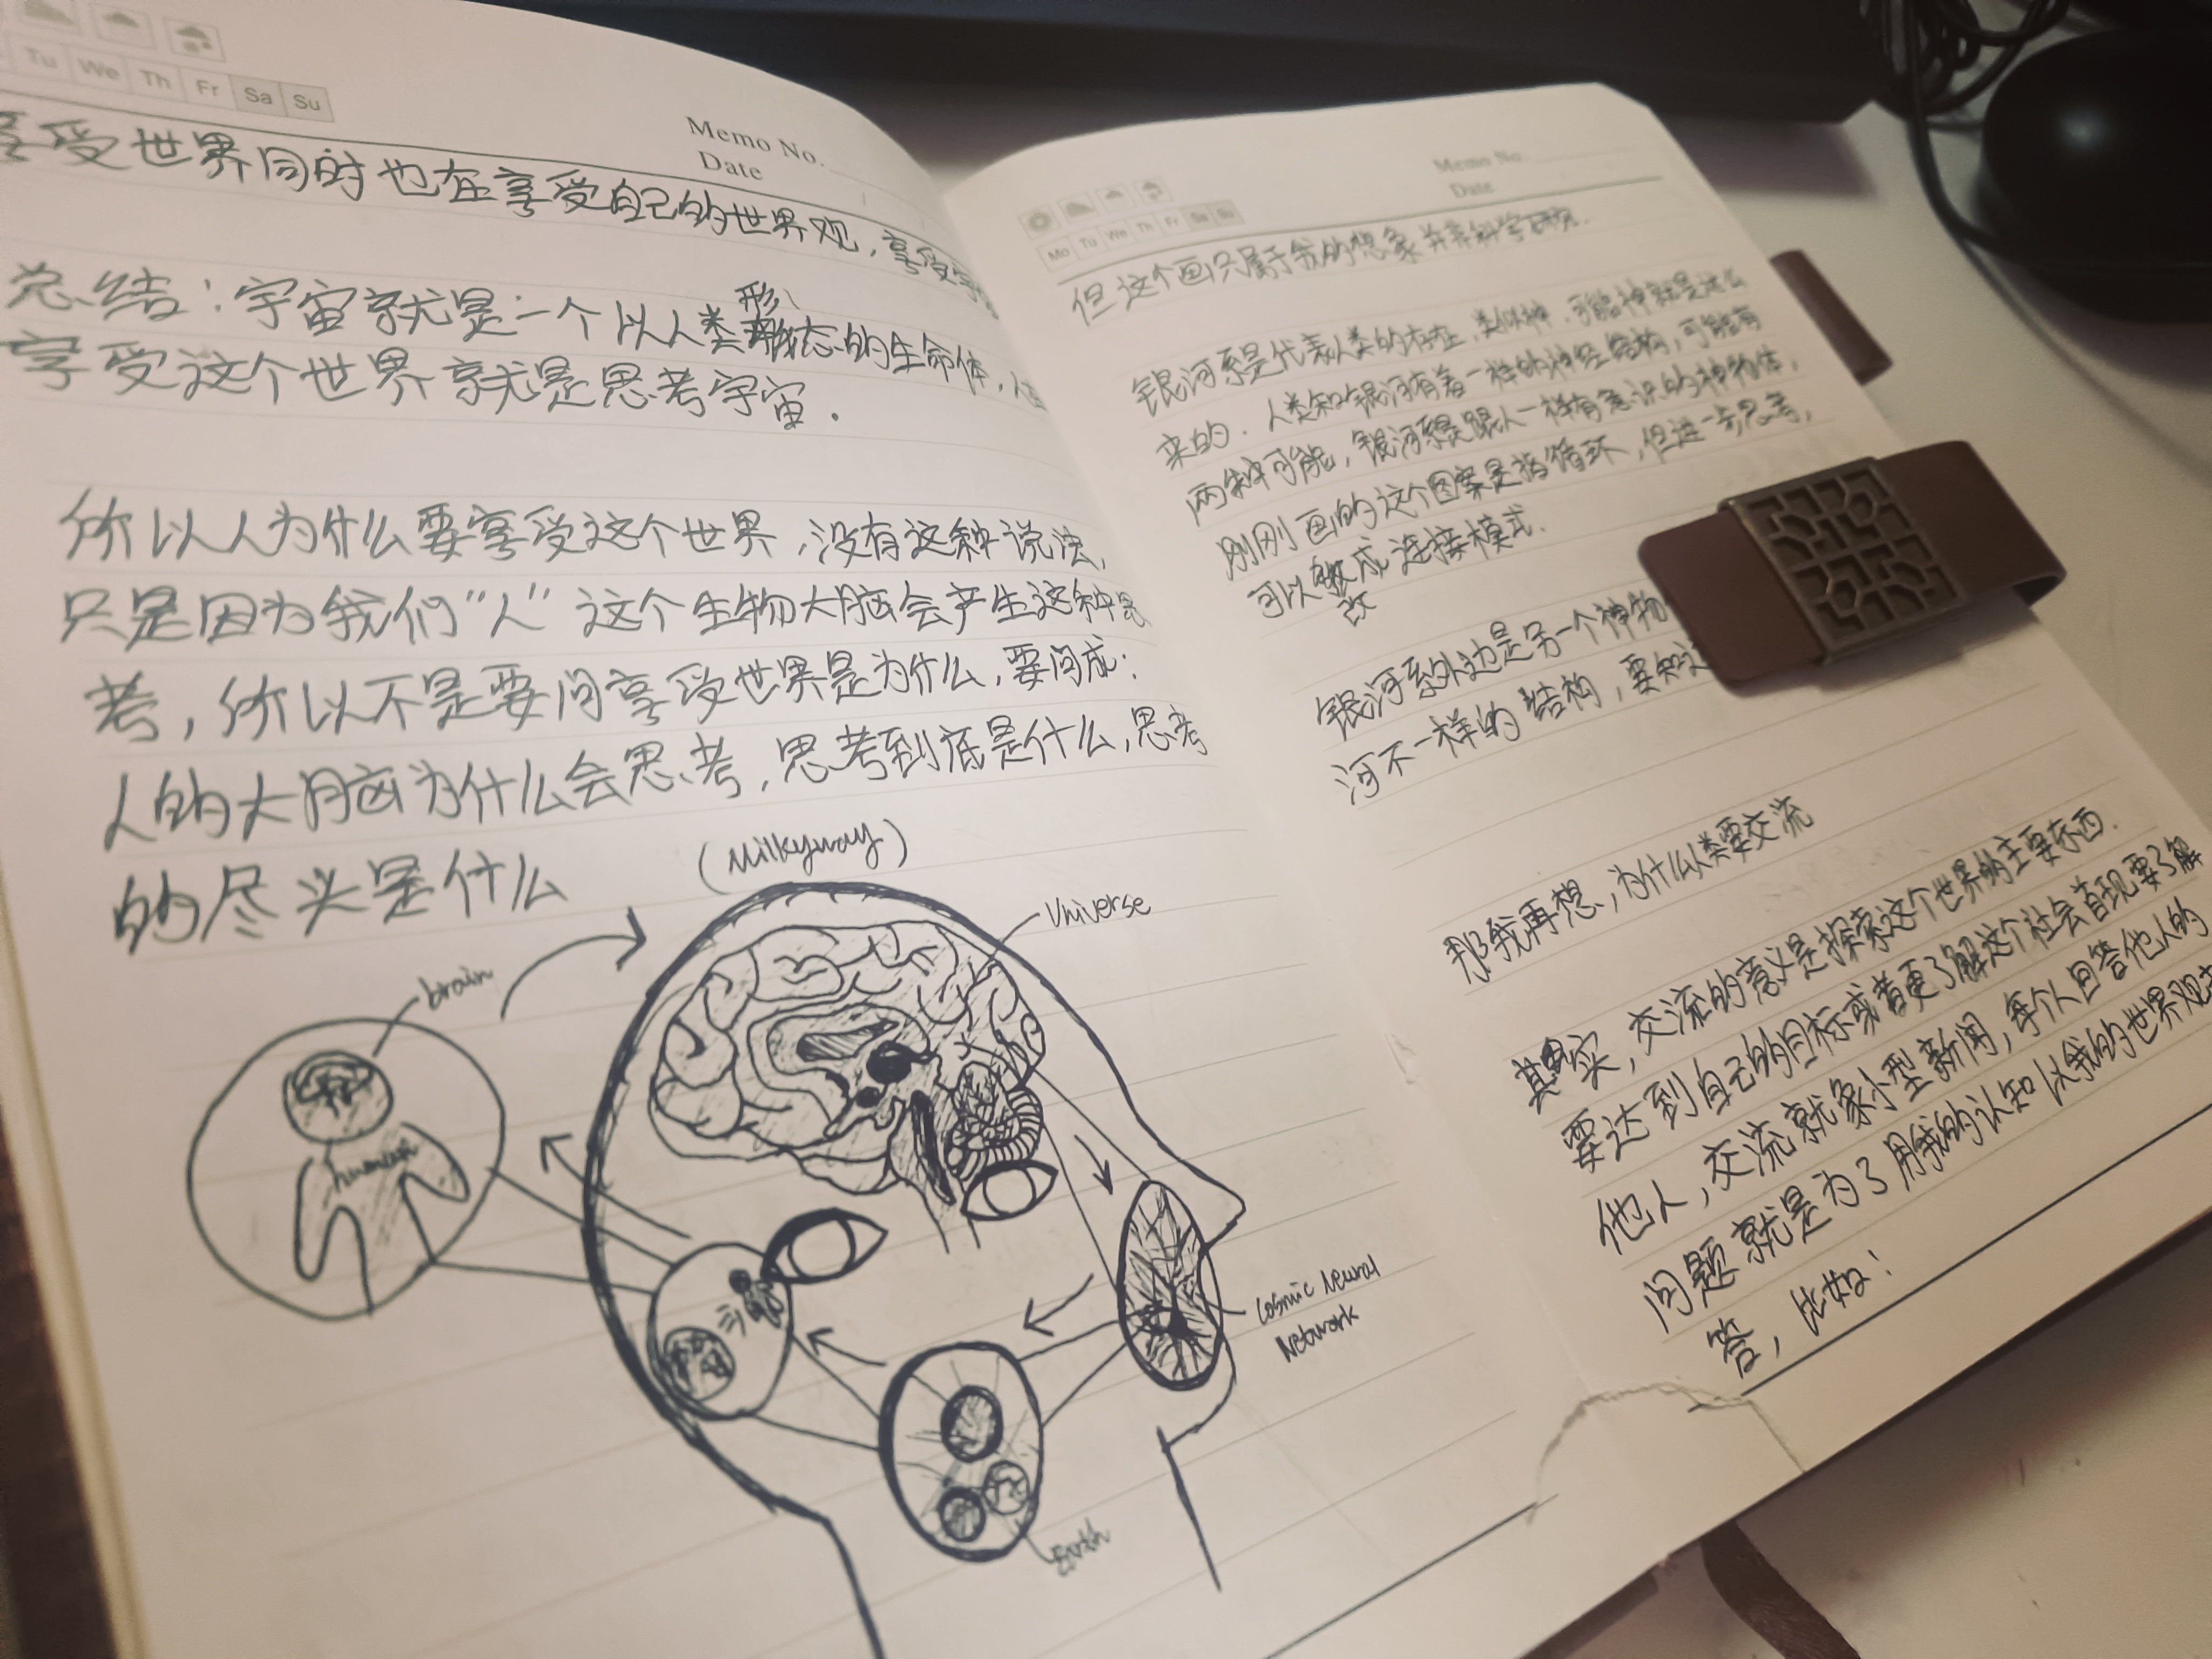 Tu We Th Fr Sa Su
Memo No.
Date
享受世界同时也在享受自己的世界观，享受宇
总结：宇宙就是一个以人类形态的生命体，人
享受这个世界就是思考宇宙.
所以人为什么要享受这个世界，没有这种说法，
只是因为我们“人”这个生物大脑会产生这种思
考，所以不是要问享受世界是为什么，要问成：
人的大脑为什么会思考，思考到底是什么，思考
的尽头是什么
(Milkyway)
Universe
brain
human
Cosmic Neural
Network
Earth
Memo No.
Date
Mo Tu We Th Fr Sa Su
但这个画只属于我的想象并非科学研究.
银河系是代表人类的存在，类似神，可能神就是这么
来的.人类和银河有着一样的神经结构，可能有
两种可能，银河系是跟人一样有意识的神物体，
刚刚画的这个图案是指循环，但进一步思考，
可以改成连接模式.
银河系外边是另一个神物
河不一样的结构，要知道
那我再想，为什么人类要交流
其实，交流的意义是探索这个世界的主要东西.
要达到自己的目标或者更了解这个社会首现要了解
他人，交流就象小型新闻，每个人回答他人的
问题就是为了用我的认知以我的世界观去
答，比如：